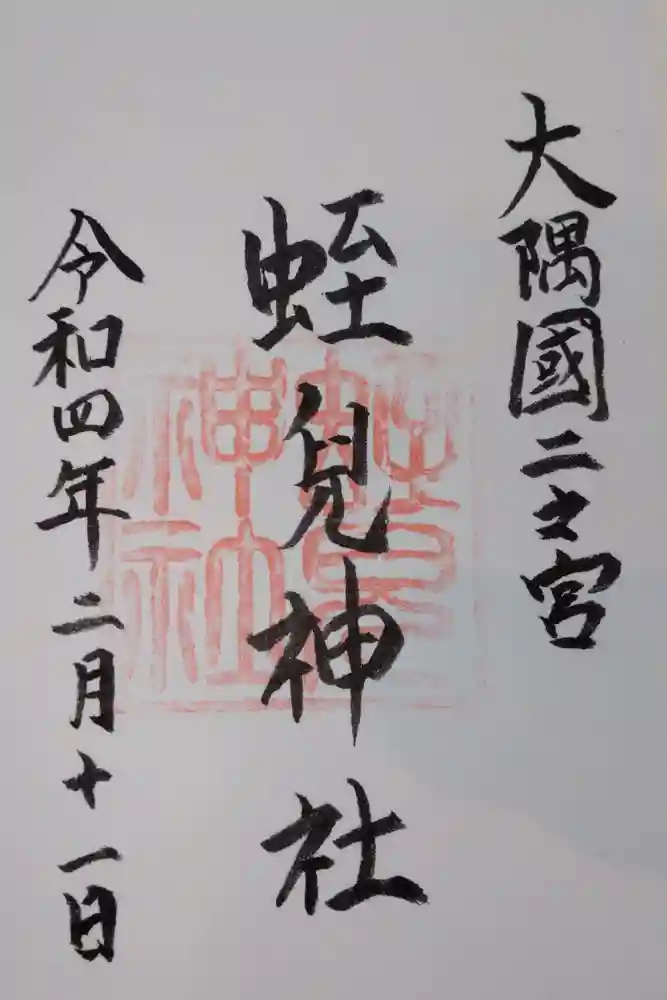 大隅國二之宮
蛭兒神社
令和四年二月十一日
蛭兒
神社